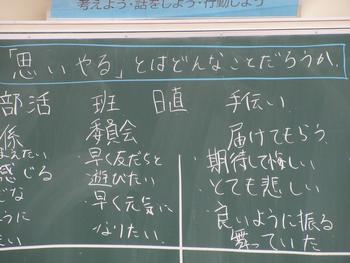 考えよう・話をしよう・行動しよう
「思いやる」とはどんなことだろうか。
部活 班 日直 手伝い
係
えたい
感じる
な
うに
たい
委員会
・早く友だちと
遊びたい
・早く元気に
なりたい
届けてもらう
・期待して悔しい
・とても悲しい
・良いように振る
舞っていた